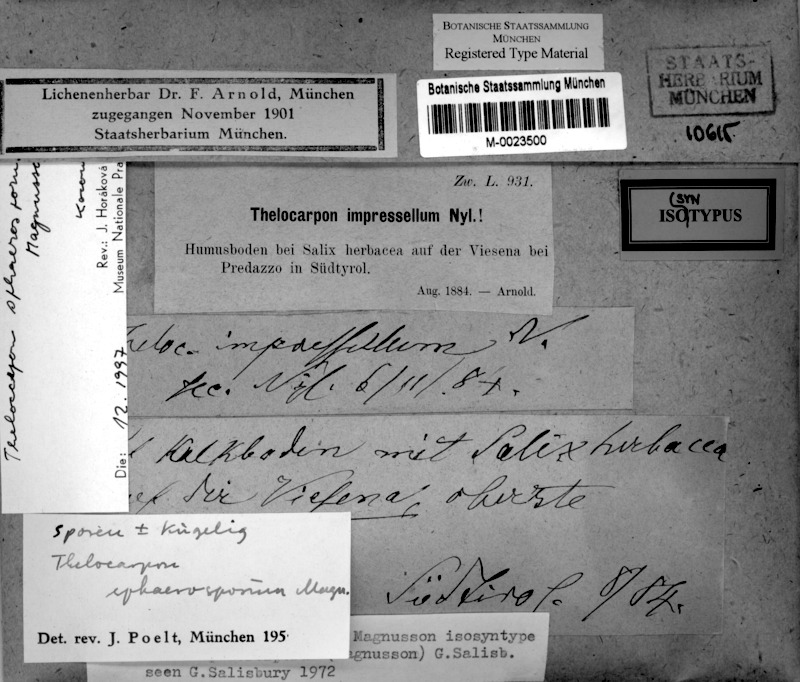 BOTANISCHE STAATSSAMMLUNG
MÜNCHEN
Registered Type Material
Botanische Staatssammlung München
M-0023500
STAATS-
HERBARIUM
MÜNCHEN
10615
Lichenenherbar Dr. F. Arnold, München
zugegangen November 1901
Staatsherbarium München.
(SYN
ISOTYPUS
Zw. L. 931.
Thelocarpon impressellum Nyl.!
Humusboden bei Salix herbacea auf der Viesena bei
Predazzo in Südtyrol.
Aug. 1884. — Arnold.
Thelocarpon sphaerosporum
Magnusson
Rev.: J. Horáková
Museum Nationale Pra
Die: 12. 1997
heloc. impressellum N.
sec. Nyl. 6/11/.84.
Kalkboden mit Salix herbacea
auf der Viesena, oberste
Südtirol. 8/84.
Sporen ± Kugelig
Thelocarpon
sphaerosporum Magn.
Det. rev. J. Poelt, München 195
Magnusson isosyntype
agnusson) G.Salisb.
seen G.Salisbury 1972